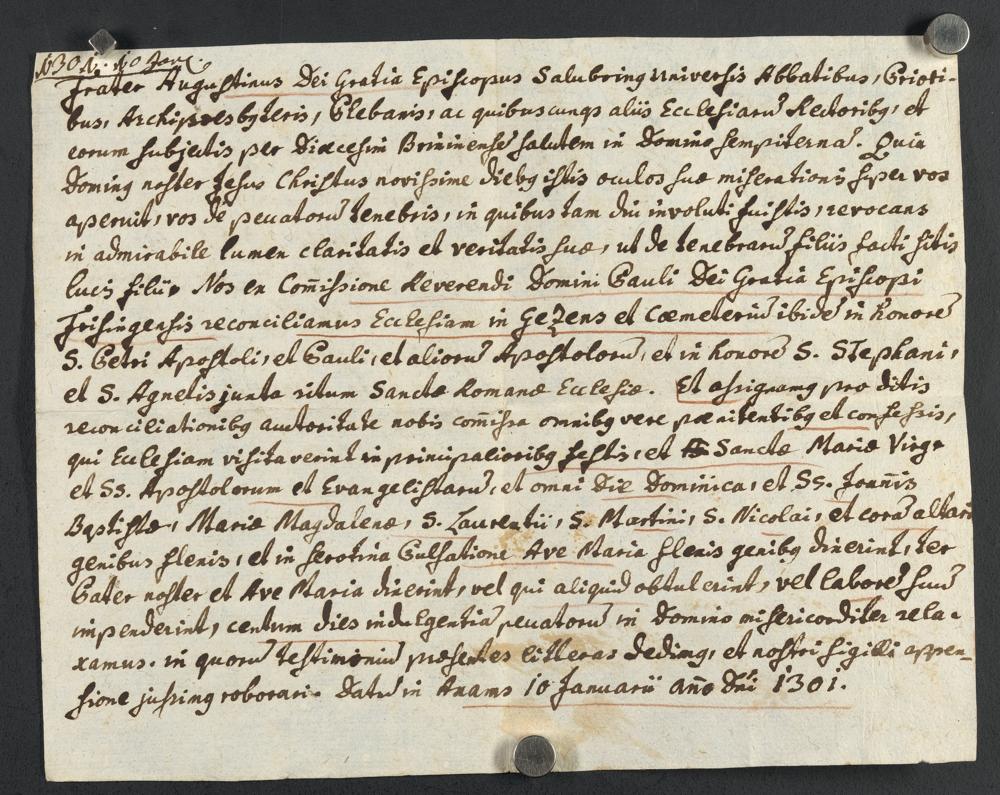 1301. 10 Janr.
Frater Augustinus Dei Gratia Episcopus Salubring universis Abbatibus, Priori-
bus, Archipresbyteris, Plebanis, ac quibuscunqs aliis Ecclesiarũ Rectoribg, et
eorum subjectis per Diœcesim Brixinensẽ salutem in Domino sempiternã. Quia
Doming noster Jesus Christus novissime diebg istis oculos suæ miserationis super vos
aperuit, vos de peccatorũ tenebris, in quibus tam diu involuti fuistis, revocans
in admirabile lumen claritatis et veritatis suæ, ut de tenebrarũ filiis facti sitis
lucis filii. Nos ex Com̃issione Reverendi Domini Pauli Dei Gratia Episcopi
Frisingensis reconciliamus Ecclesiam in Gezens et Cœmeteriũ ibidẽ in honorẽ
S. Petri Apostoli, et Pauli, et aliorũ Apostolorũ, et in honorẽ S. Stephani,
et S. Agnetis juxta ritum Sanctæ Romanæ Ecclesiæ. Et assignamg pro dictis
reconciliationibg auctoritate nobis com̃issa omnibg vere pœnitentibg et confessis,
qui Ecclesiam visitaverint in principalioribg festis, et Sanctæ Mariæ Virg.
et Ss. Apostolorum et Evangelistarũ, et omni Die Dominica, et Ss. Joan̄is
Baptistæ, Mariæ Magdalenæ, S. Laurentii, S. Martini, S. Nicolai, et corã altari
genibus flexis, et in serotina Pulsatione Ave Maria flexis genibg dixerint, ter
Pater noster et Ave Maria dixerint, vel qui aliquid obtulerint, vel laborẽ suũ
impenderint, centum dies indulgentiã peccatorũ in Domino misericorditer rela-
xamus. in quorũ testimoniũ præsentes litteras dedimg, et nostri sigilli appen-
sione jussimg roborari. Datũ in Axams 10 Januarii an̄o Dn̄i 1301.